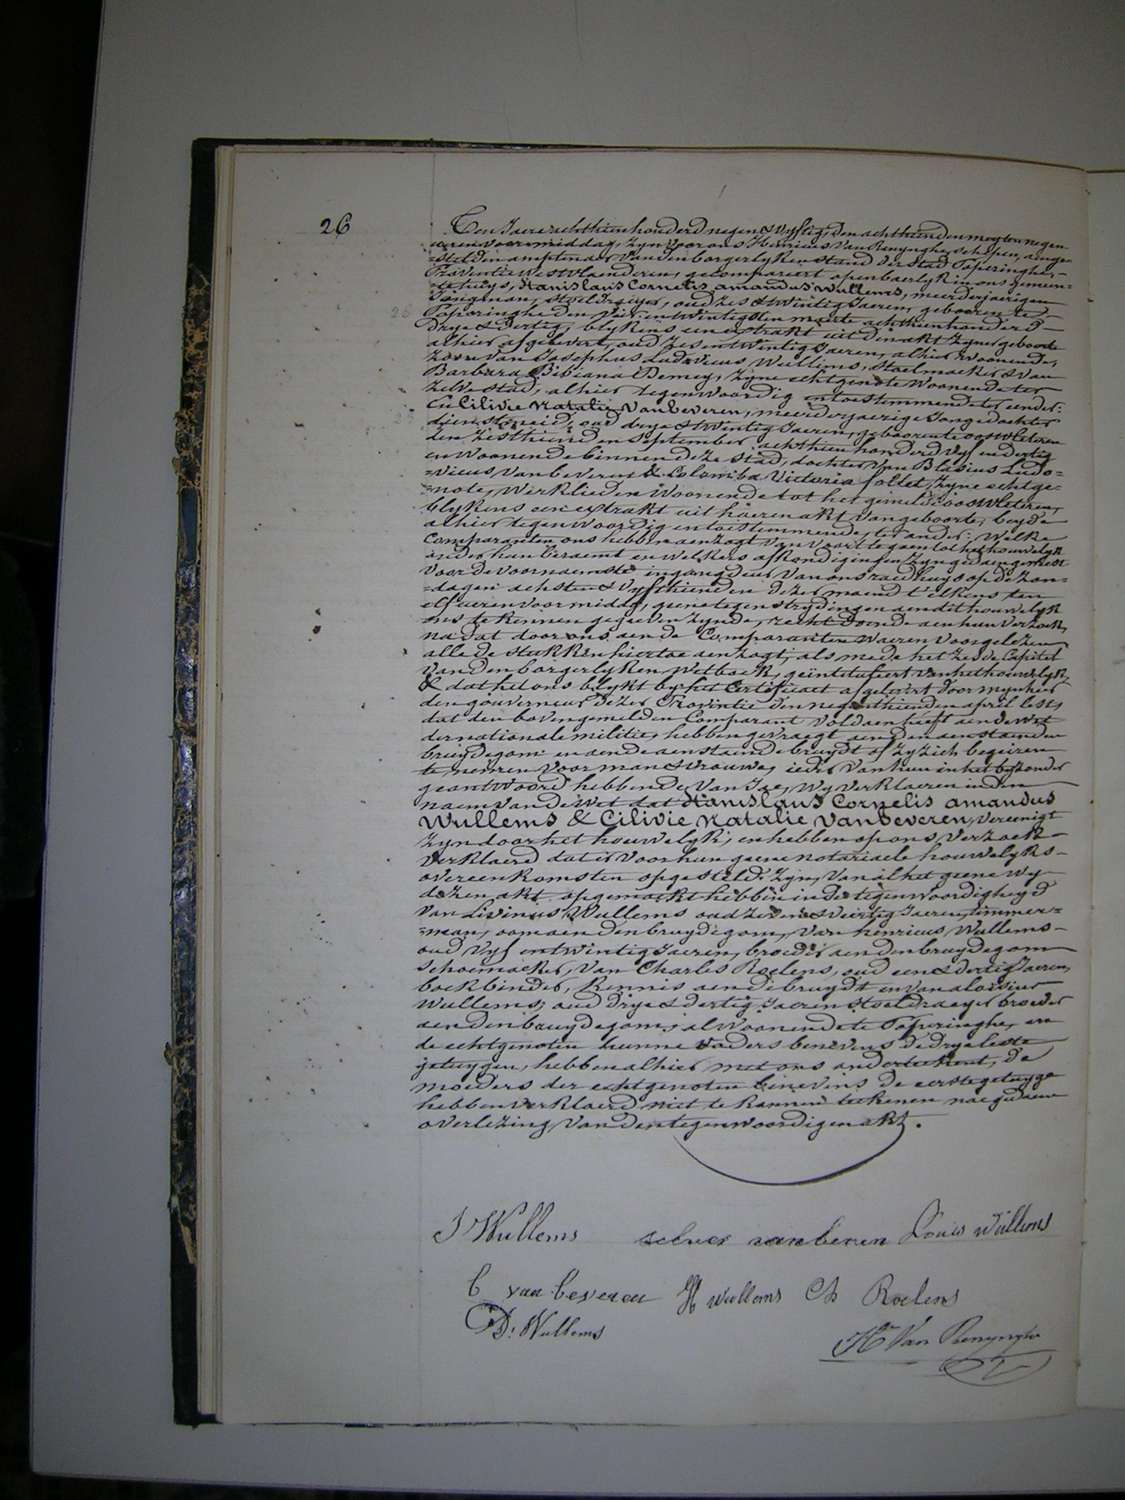 26
Ten Jaere achthien honderd negen & vyftig, den achthienden mey ten negen
uren voormiddag, zyn voor ons Henricus Van Renynghe, schepen, ambte-
Provintie Westvlaenderen, gecompareert openbaerlyk in ons gemeen-
tehuys, Stanislaus Cornelis amandus Wullems, meerderjaerigen
Jongman, stoeldraeyer, oud zes & twintig Jaeren, geboren te
Poperinghe den vyf en twintigsten maerte achthien honderd
drye & dertig, blykens een extrakt uit den akt zyner geboorte
alhier afgelevert, oud zes en twintig Jaeren, alhier woonende,
Zoon van Josephus Ludovicus Wullems, Stoelmaeker & van
Barbara Bibiana Demey, zyne echtgenote woonende ter
zelve stad, alhier tegenwoordig en toestemmende ter eender:
En Cilivie Natalie Vanbeveren, meerderjaerige Jongedochter
dienstmeid, oud drye & twintig Jaeren, geboren te oostvleteren
den zesthienden September achthien honderd vyf en dertig
en woonende binnen deze stad, dochter van Blasius Ludo-
=vicus Vanbeveren & Colomba Victoria follet, zyne echtge-
=note, Werklieden woonende tot het gemelde oostvleteren,
blykens een extrakt uit haeren akt van geboorte, beyde
alhier tegenwoordig en toestemmende, ter ander: Welke
Comparanten ons hebben aenzogt van voort te gaen tot het houwelyk
onder hun beraemt en welkers afkondigingen zyn gedaen geweest
voor de voornaemste ingangdeur van ons raedhuys op de zon-
=dagen achsten & vyfthienden dezer maend t'elkens ten
elf ueren voor middag, geene tegenstrydingen aen dit houwelyk
ons te kennen gegeven zynde, recht doende aen hun verzoek,
na dat door ons aen de Comparanten waeren voorgelezen
alle de stukken hiertoe aenzogt, als mede het zesde Capitel
van den borgerlyken Wetboek, geïntituleert van het houwelyk,
& dat het ons blykt by het Certificaet afgelevert door mynheer
den gouverneur dezer Provintie den negenthienden april lest,
dat den bovengemelden Comparant voldaen heeft aen de wet
der nationale militie, hebben gevraegt aen den aenstaenden
bruydegom en aen de aenstaende bruydt of zy zich begeiren
te nemen voor man & vrouwe, ieder van hun in het byzonder
geantwoord hebbende van Jae, Wy verklaeren in den
naem van de wet dat Stanislaus Cornelis amandus
Wullems & Cilivie Natalie Vanbeveren, vereenigt
zyn door het houwelyk, en hebben op ons verzoek
verklaerd dat er voor hun geene notariaele houwelyks-
overeenkomsten opgesteld zyn, Van al het geene wy
dezen akt opgemaekt hebben in de tegenwoordigheyd
van Livinus Wullems oud zeven & veertig Jaeren, timmer=
=man, oom aen den bruydegom, van henricus Wullems-
oud vyf en twintig Jaeren, broeder aen den bruydegom
schoemaeker, van Charles Roelens, oud een & dertig Jaeren,
boekbinder, kennis aen de bruydt en van aloisius
Wullems, oud drye & dertig Jaeren stoeldraeyer broeder
aen den bruydegom, al woonende te Poperinghe, en
de echtgenoten hunne vaders benevens de drye leste
getuygen, hebben alhier met ons onderteekent, de
moeders der echtgenoten benevens de eerste getuyge
hebben verklaerd niet te kunnen teekenen nae gedaene
overlezing van den tegenwoordigen akt.
J Wullems selver vanbeveren Louis Wullems
C van beveren H wullems Ch Roelens
D: Wullems
Hri Van Renynghe